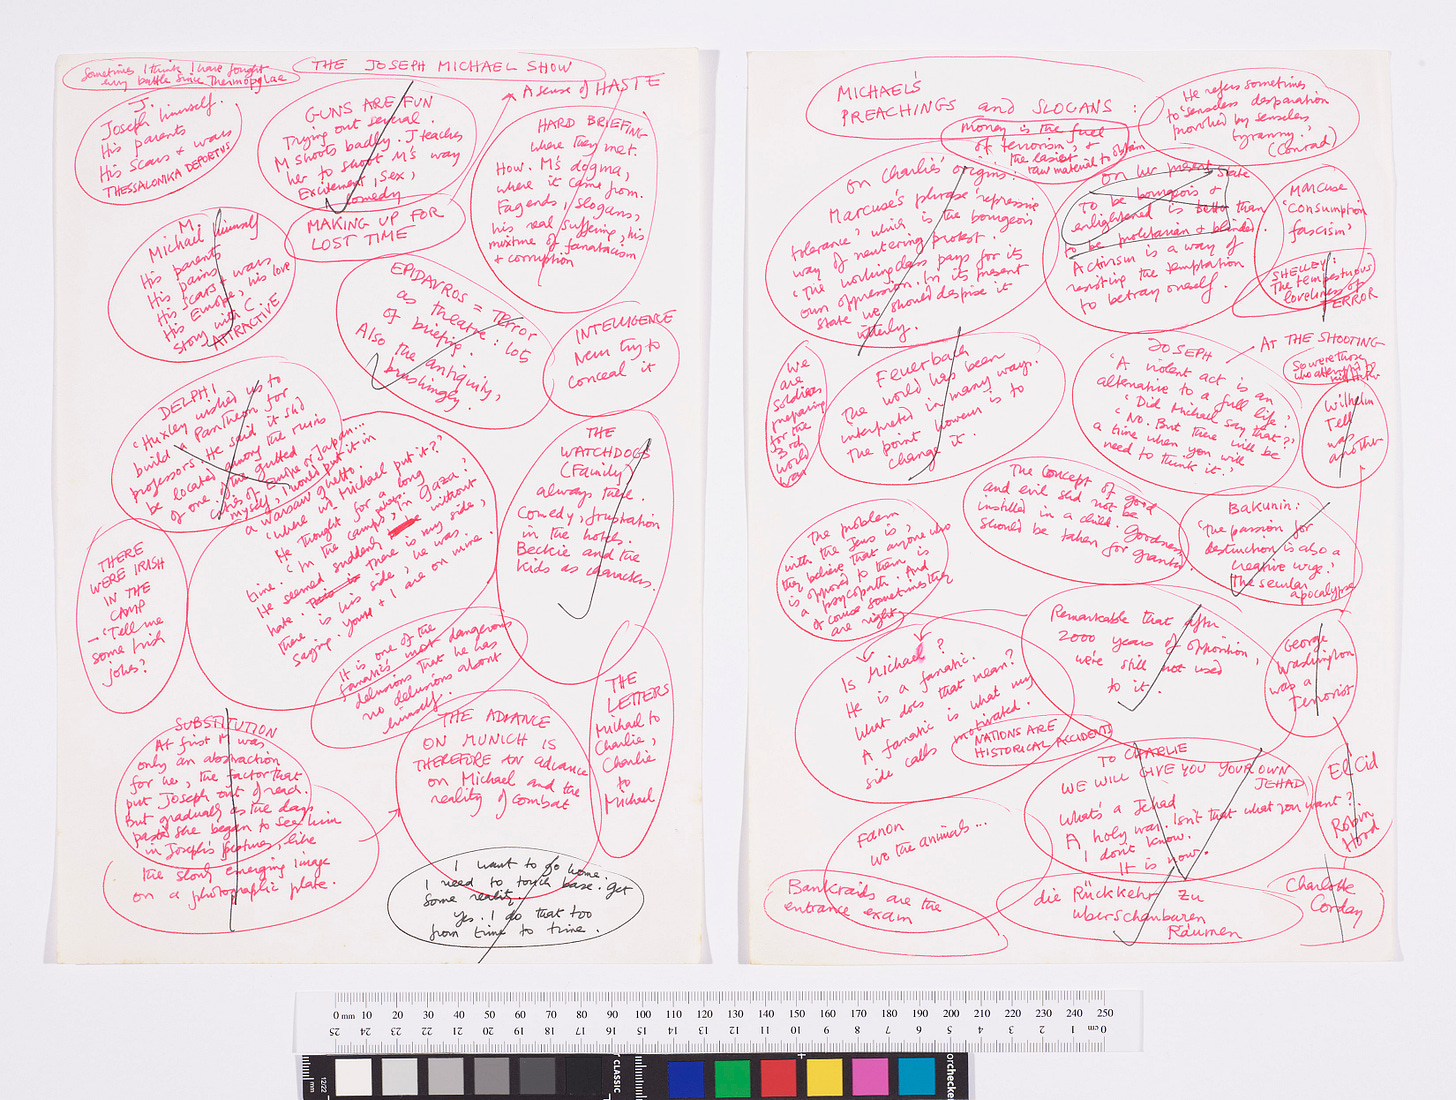 Sometimes I think I have fought
every battle since Thermopylae
THE JOSEPH MICHAEL SHOW
A sense of HASTE
J.
Joseph himself.
His parents
His scars + wars
THESSALONIKA DEPORTUS
GUNS ARE FUN
Trying out sexual.
M shoots badly. J teaches
her to shoot M's way
Excitement, Sex,
Comedy
HARD BRIEFING
where they met.
How. M's dogma,
where it came from.
Fagends, slogans,
his real suffering, his
mixture of fanaticism
+ corruption
MAKING UP FOR
LOST TIME
M.
Michael himself
His parents
His pains
His scars + wars
His Europe, his love
story with C
ATTRACTIVE
EPIDAVROS = TERROR
as theatre: lots
of briefing.
Also the antiquity,
brushingly.
INTELLIGENCE
Never try to
conceal it
DELPHI
'Huxley wished us to
build a Pantheon for
professors. He said it shd
be located among the ruins
of one of the gutted
cities of Europe or Japan...
myself, I would put it in
a Warsaw ghetto.'
'Where wd Michael put it?'
He thought for a long
time.
'In the camps, in Gaza.'
He seemed suddenly to be without
hate. There is my side,
there is his side, he was
saying. You + I are on mine.
THE
WATCHDOGS
(Family)
always there.
Comedy, frustration
in the hotels.
Beckie and the
kids as characters.
THERE
WERE IRISH
IN THE
CAMP
– 'Tell me
some Irish
jokes?
It is one of the
fanatic's most dangerous
delusions that he has
no delusions about
himself.
THE
LETTERS
Michael to
Charlie,
Charlie
to
Michael
SUBSTITUTION
At first M was
only an abstraction
for her, the factor that
put Joseph out of reach.
But gradually as the days
pass she began to see him
in Joseph's features, like
the slowly emerging image
on a photographic plate.
THE ADVANCE
ON MUNICH IS
THEREFORE AN ADVANCE
on Michael and the
reality of combat
I want to go home.
I need to touch base. Get
some reality.
Yes. I do that too
from time to time.
MICHAEL'S
PREACHINGS and SLOGANS:
He refers sometimes
to 'senseless desparation
provoked by senseless
tyranny.'
(Conrad)
Money is the fuel
of terrorism, &
the easiest
raw material to obtain
On Charlie's origins:
Marcuse's phrase 'repressive
tolerance', which is the bourgeois
way of neutering protest.
'The working class pays for its
own oppression. In its present
state we should despise it
utterly.
On her present state
To be bourgeois +
enlightened is better than
to be proletarian + blinded.
Activism is a way of
resisting the temptation
to betray oneself.
MARCUSE
'Consumption
fascism'
SHELLEY:
The tempestuous
loveliness of
TERROR
We
are
soldiers
preparing
for the
3rd
world
war
Feuerbach
The world has been
interpreted in many ways.
The point however is to
change it.
JOSEPH
AT THE SHOOTING
'A violent act is an
alternative to a full life.'
'Did Michael say that?'
'No. But there will be
a time when you will
need to think it.'
So were those
who attempted to
kill Hitler
Wilhelm
Tell
was
another
The concept of good
and evil shd not be
instilled in a child. Goodness
should be taken for granted.
Bakunin:
'The passion for
destruction is also a
creative urge.'
The secular
apocalypse
The problem
with the Jews is,
they believe that anyone who
is opposed to them is
a psycopath. And
of course sometimes they
are right.
Remarkable that after
2000 years of opposition,
we're still not used
to it.
George
Washington
was a
Terrorist
Is Michael?
He is a fanatic.
What does that mean?
A fanatic is what my
side calls motivated.
NATIONS ARE
HISTORICAL ACCIDENTS
TO CHARLIE
WE WILL GIVE YOU YOUR OWN
JEHAD
What's a Jehad
A holy war. Isn't that what you want?
I don't know.
It is now.
El Cid
Robin
Hood
Fanon
We the animals...
Bankraids are the
entrance exam
die Rückkehr zu
überschaubaren
Räumen
Charlotte
Corday
0 mm 10 20 30 40 50 60 70 80 90 100 110 120 130 140 150 160 170 180 190 200 210 220 230 240 250
25 24 23 22 21 20 19 18 17 16 15 14 13 12 11 10 9 8 7 6 5 4 3 2 1 0 cm
mm
12/22
CLASSIC
orchecker